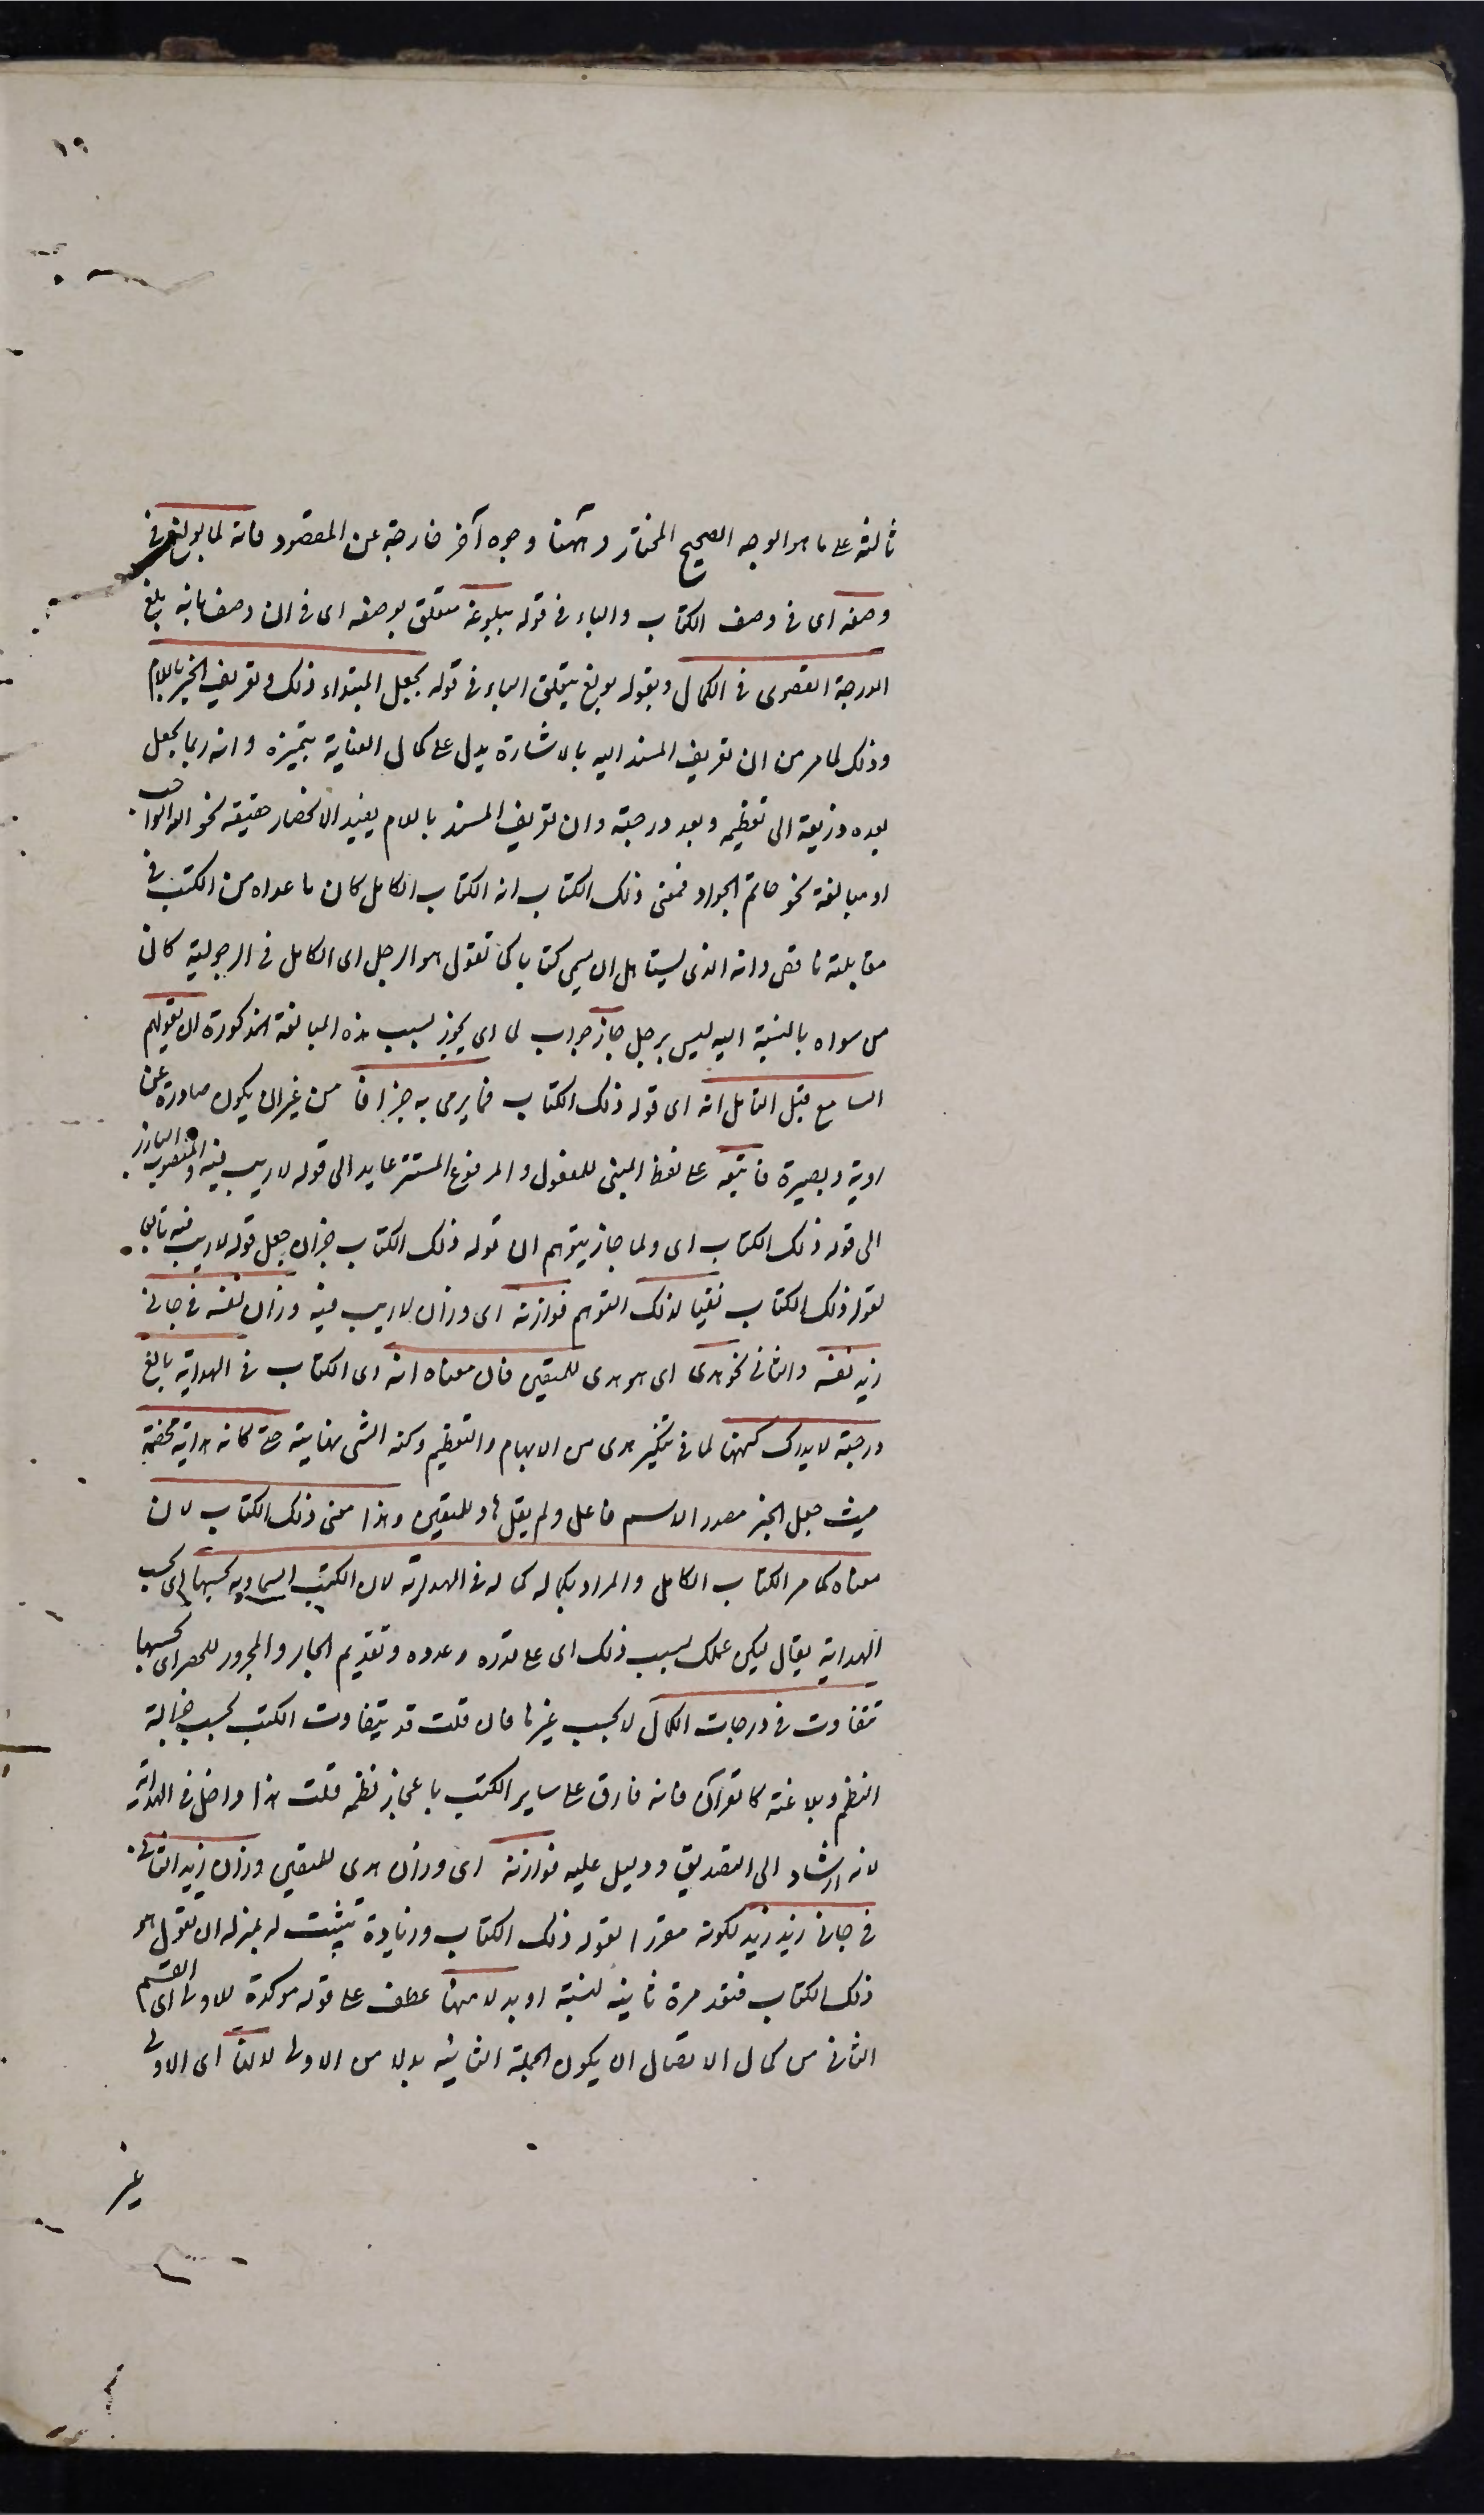 ١٩
ثالثة على ما هو الوجه الصحيح المختار وههنا وجوه آخر خارجة عن المقصود فانه لما بولغ في
وصفه اى في وصف الكتاب والباء في قوله ببلوغه متعلق بوصفه اى في ان وصف بانه بلغ
الدرجة القصوى في الكمال وبقوله بولغ يتعلق الباء في قوله بجعل المبتداء ذلك وتعريف الخبر باللام
وذلك لما مر من ان تعريف المسند اليه بالاشارة يدل على كمال العناية بتميزه وانه ربما يجعل
بعده ذريعة الى تعظيمه وبعد درجته وان تعريف المسند باللام يفيد الانحصار حقيقة نحو الله الواجب
او مبالغة نحو حاتم الجواد فمعنى ذلك الكتاب انه الكتاب الكامل كان ما عداه من الكتب في
مقابلته ناقص وانه الذى يستاهل ان يسمى كتابا كما تقول هو الرجل اى الكامل في الرجولية كان
من سواه بالنسبة اليه ليس برجل جاز جواب لما اى يجوز بسبب هذه المبالغة المذكورة ان يتوهم
السامع قبل التامل انه اى قوله ذلك الكتاب مما يرمى به جزافا من غير ان يكون صادرة عن
روية وبصيرة فاتبعه على لفظ المبنى للمفعول والمرفوع المستتر عايد الى قوله لا ريب فيه والمنصوب البارز
الى قوله ذلك الكتاب اى ولما جاز يتوهم ان قوله ذلك الكتاب جزاف جعل قوله لا ريب فيه تابعا
لقوله ذلك الكتاب نفيا لذلك التوهم فوزانه اى وزان لا ريب فيه وزان نفسه في جاءنى
زيد نفسه والثانى نحو هدى اى هو هدى للمتقين فان معناه انه اى الكتاب في الهداية بالغ
درجة لا يدرك كنهها لما في تنكير هدى من الابهام والتعظيم وكنه الشى نهايته حتى كانه هداية محضة
حيث جعل الخبر مصدرا لا اسم فاعل ولم يقل هاد للمتقين وهذا معنى ذلك الكتاب لان
معناه كما مر الكتاب الكامل والمراد بكماله كماله في الهداية لان الكتب السماوية بحسبها اى بحسب
الهداية يقال ليكن عملك بحسب ذلك اى على قدره وعدده وتقديم الجار والمجرور للحصر اى بحسبها
تتفاوت في درجات الكمال لا بحسب غيرها فان قلت قد يتفاوت الكتب بحسب جزالة
النظم وبلاغته كالقرآن فانه فارق على ساير الكتب باعجاز نظمه قلت هذا داخل في الهداية
لانه ارشاد الى التصديق ودليل عليه فوزانه اى وزان هدى للمتقين وزان زيد الثانى
في جاءنى زيد زيد لكونه مقررا لقوله ذلك الكتاب وزيادة تثبيت له بمنزلة ان تقول هو
ذلك الكتاب فتعد مرة ثانية لتثبته او بدلا منها عطف على قوله موكدة للاولى اى القسم
الثانى من كمال الاتصال ان يكون الجملة الثانية بدلا من الاولى لانها اى الاولى
غير